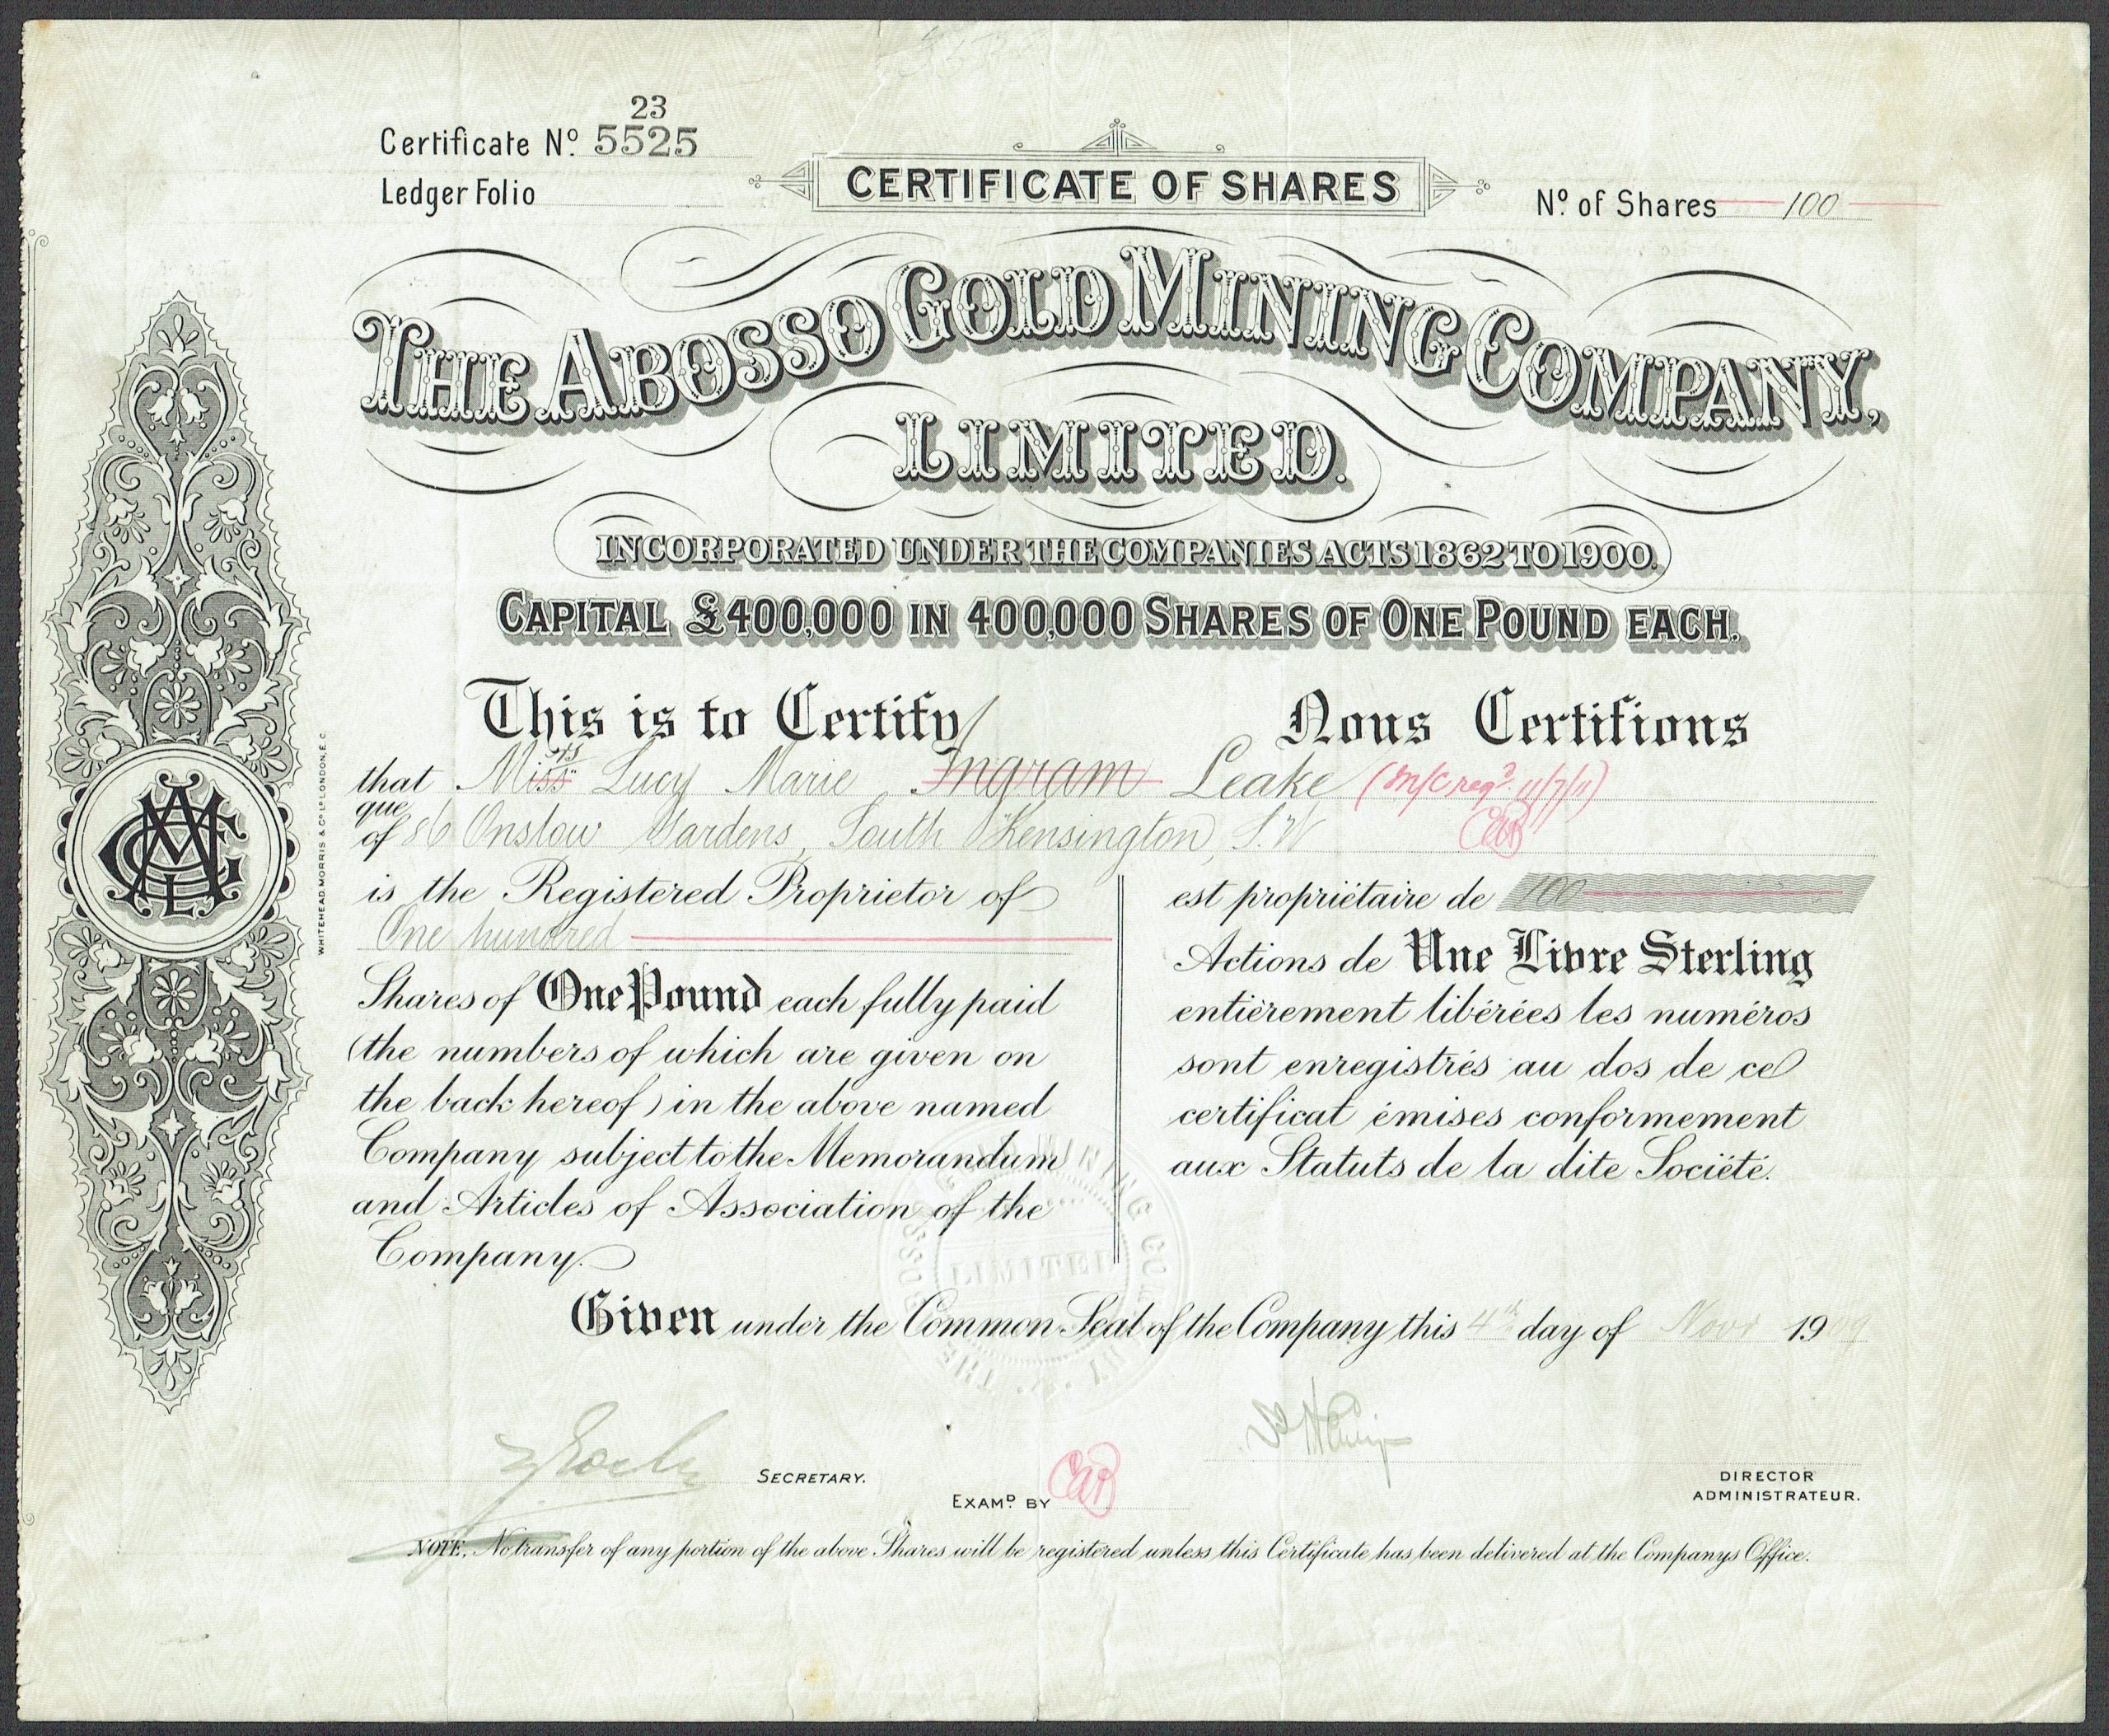 23
Certificate Nº. 5525
Ledger Folio
CERTIFICATE OF SHARES
Nº. of Shares 100
THE ABOSSO GOLD MINING COMPANY,
LIMITED.
INCORPORATED UNDER THE COMPANIES ACTS 1862 TO 1900.
CAPITAL £400,000 IN 400,000 SHARES OF ONE POUND EACH.
This is to Certify
Nous Certifions
that Miss Lucy Marie Ingram Leake (m/c regd. 11/7/11)
que
of 86 Onslow Gardens, South Kensington, S.W
is the Registered Proprietor of
One hundred
Shares of One Pound each fully paid
(the numbers of which are given on
the back hereof) in the above named
Company subject to the Memorandum
and Articles of Association of the
Company.
est propriétaire de 100
Actions de Une Livre Sterling
entièrement libérées les numéros
sont enregistrés au dos de ce
certificat émises conformement
aux Statuts de la dite Société.
Given under the Common Seal of the Company this 4th day of Novr 1909
SECRETARY.
EXAMD. BY
DIRECTOR
ADMINISTRATEUR.
NOTE. No transfer of any portion of the above Shares will be registered unless this Certificate has been delivered at the Companys Office.
WHITEHEAD, MORRIS & Co. Ld. LONDON, E.C
LIMITED